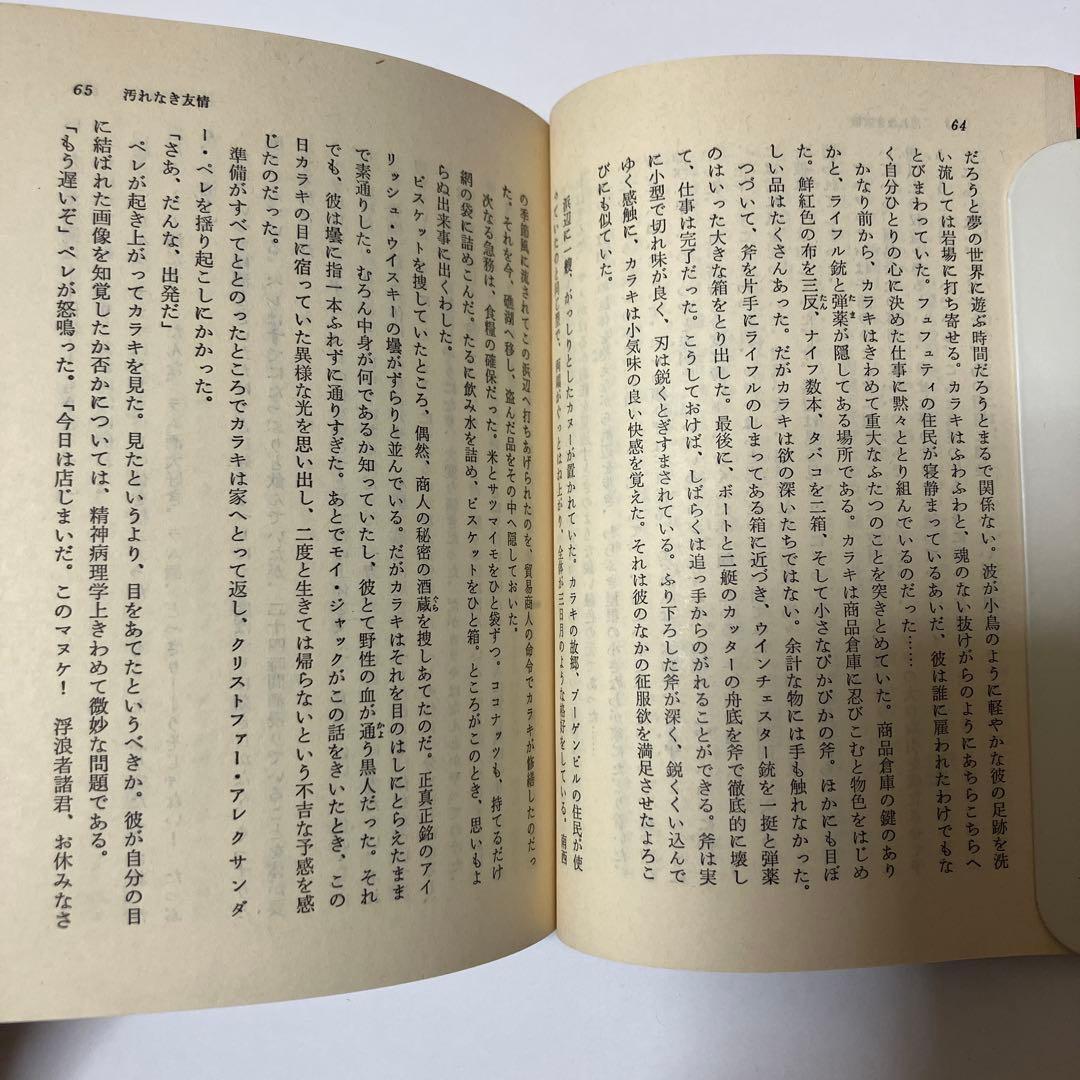 64
だろうと夢の世界に遊ぶ時間だろうとまるで関係ない。波が小鳥のように軽やかな彼の足跡を洗
い流しては岩場に打ち寄せる。カラキはふわふわと、魂のない抜けがらのようにあちらこちらへ
とびまわっていた。フュフュティの住民が寝静まっているあいだ、彼は誰に雇われたわけでもな
く自分ひとりの心に決めた仕事に黙々ととり組んでいるのだった……
かなり前から、カラキはきわめて重大なふたつのことを突きとめていた。商品倉庫の鍵のあり
かと、ライフル銃と弾薬が隠してある場所である。カラキは商品倉庫に忍びこむと物色をはじめ
た。鮮紅色の布を三反、ナイフ数本、タバコを二箱、そして小さなぴかぴかの斧。ほかにも目ぼ
しい品はたくさんあった。だがカラキは欲の深いたちではない。余計な物には手も触れなかった。
つづいて、斧を片手にライフルのしまってある箱に近づき、ウインチェスター銃を一挺と弾薬
のはいった大きな箱をとり出した。最後に、ボートと二艇のカッターの舟底を斧で徹底的に壊し
て、仕事は完了だった。こうしておけば、しばらくは追っ手からのがれることができる。斧は実
に小型で切れ味が良く、刃は鋭くとぎすまされている。ふり下ろした斧が深く、鋭くくい込んで
ゆく感触に、カラキは小気味の良い快感を覚えた。それは彼のなかの征服欲を満足させたよろこ
びにも似ていた。
浜辺に一艘、がっしりとしたカヌーが置かれていた。カラキの故郷、ブーゲンビルの住民が使
っていたのと同じ型で、両端がぐっとはね上がり、全体が三日月のような格好をしている。南西
65　汚れなき友情
の季節風に流されてこの浜辺へ打ちあげられたのを、貿易商人の命令でカラキが修繕したのだっ
た。それを今、礁湖へ移し、盗んだ品をその中へ隠しておいた。
次なる急務は、食糧の確保だった。米とサツマイモをひと袋ずつ。ココナッツも、持てるだけ
網の袋に詰めこんだ。たるに飲み水を詰め、ビスケットをひと箱。ところがこのとき、思いもよ
らぬ出来事に出くわした。
ビスケットを捜していたところ、偶然、商人の秘密の酒蔵を捜しあてたのだ。正真正銘のアイ
リッシュ・ウイスキーの壜がずらりと並んでいる。だがカラキはそれを目のはしにとらえたまま
で素通りした。むろん中身が何であるか知っていたし、彼とて野性の血が通う黒人だった。それ
でも、彼は壜に指一本ふれずに通りすぎた。あとでモイ・ジャックがこの話をきいたとき、この
日カラキの目に宿っていた異様な光を思い出し、二度と生きては帰らないという不吉な予感を感
じたのだった。
準備がすべてととのったところでカラキは家へとって返し、クリストファー・アレクサンダ
ー・ペレを揺り起こしにかかった。
「さあ、だんな、出発だ」
ペレが起き上がってカラキを見た。見たというより、目をあてたというべきか。彼が自分の目
に結ばれた画像を知覚したか否かについては、精神病理学上きわめて微妙な問題である。
「もう遅いぞ」ペレが怒鳴った。「今日は店じまいだ。このマヌケ！　浮浪者諸君、お休みなさ